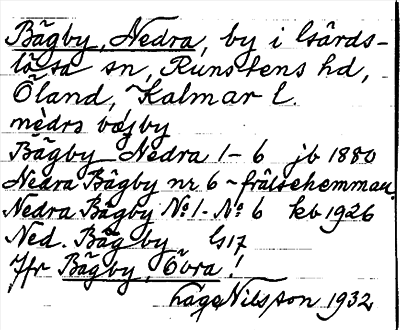 Bägby, Nedra, by i Gärds-
lösa sn, Runstens hd,
Öland, Kalmar l.
nèdra bæjby
Bägby Nedra 1-6 jb 1880
Nedra Bägby nr 6 ~ frälsehemman.
Nedra Bägby No 1-No 6 kb 1926
Ned. Bägby G17
Jfr Bägby, Övra!
Hage Nilsson 1932